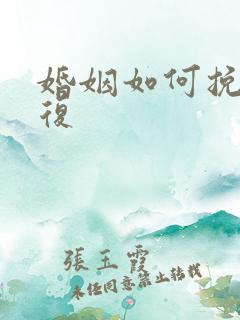 婚姻如何挽
復
張玉霞
未經同意禁止轉載